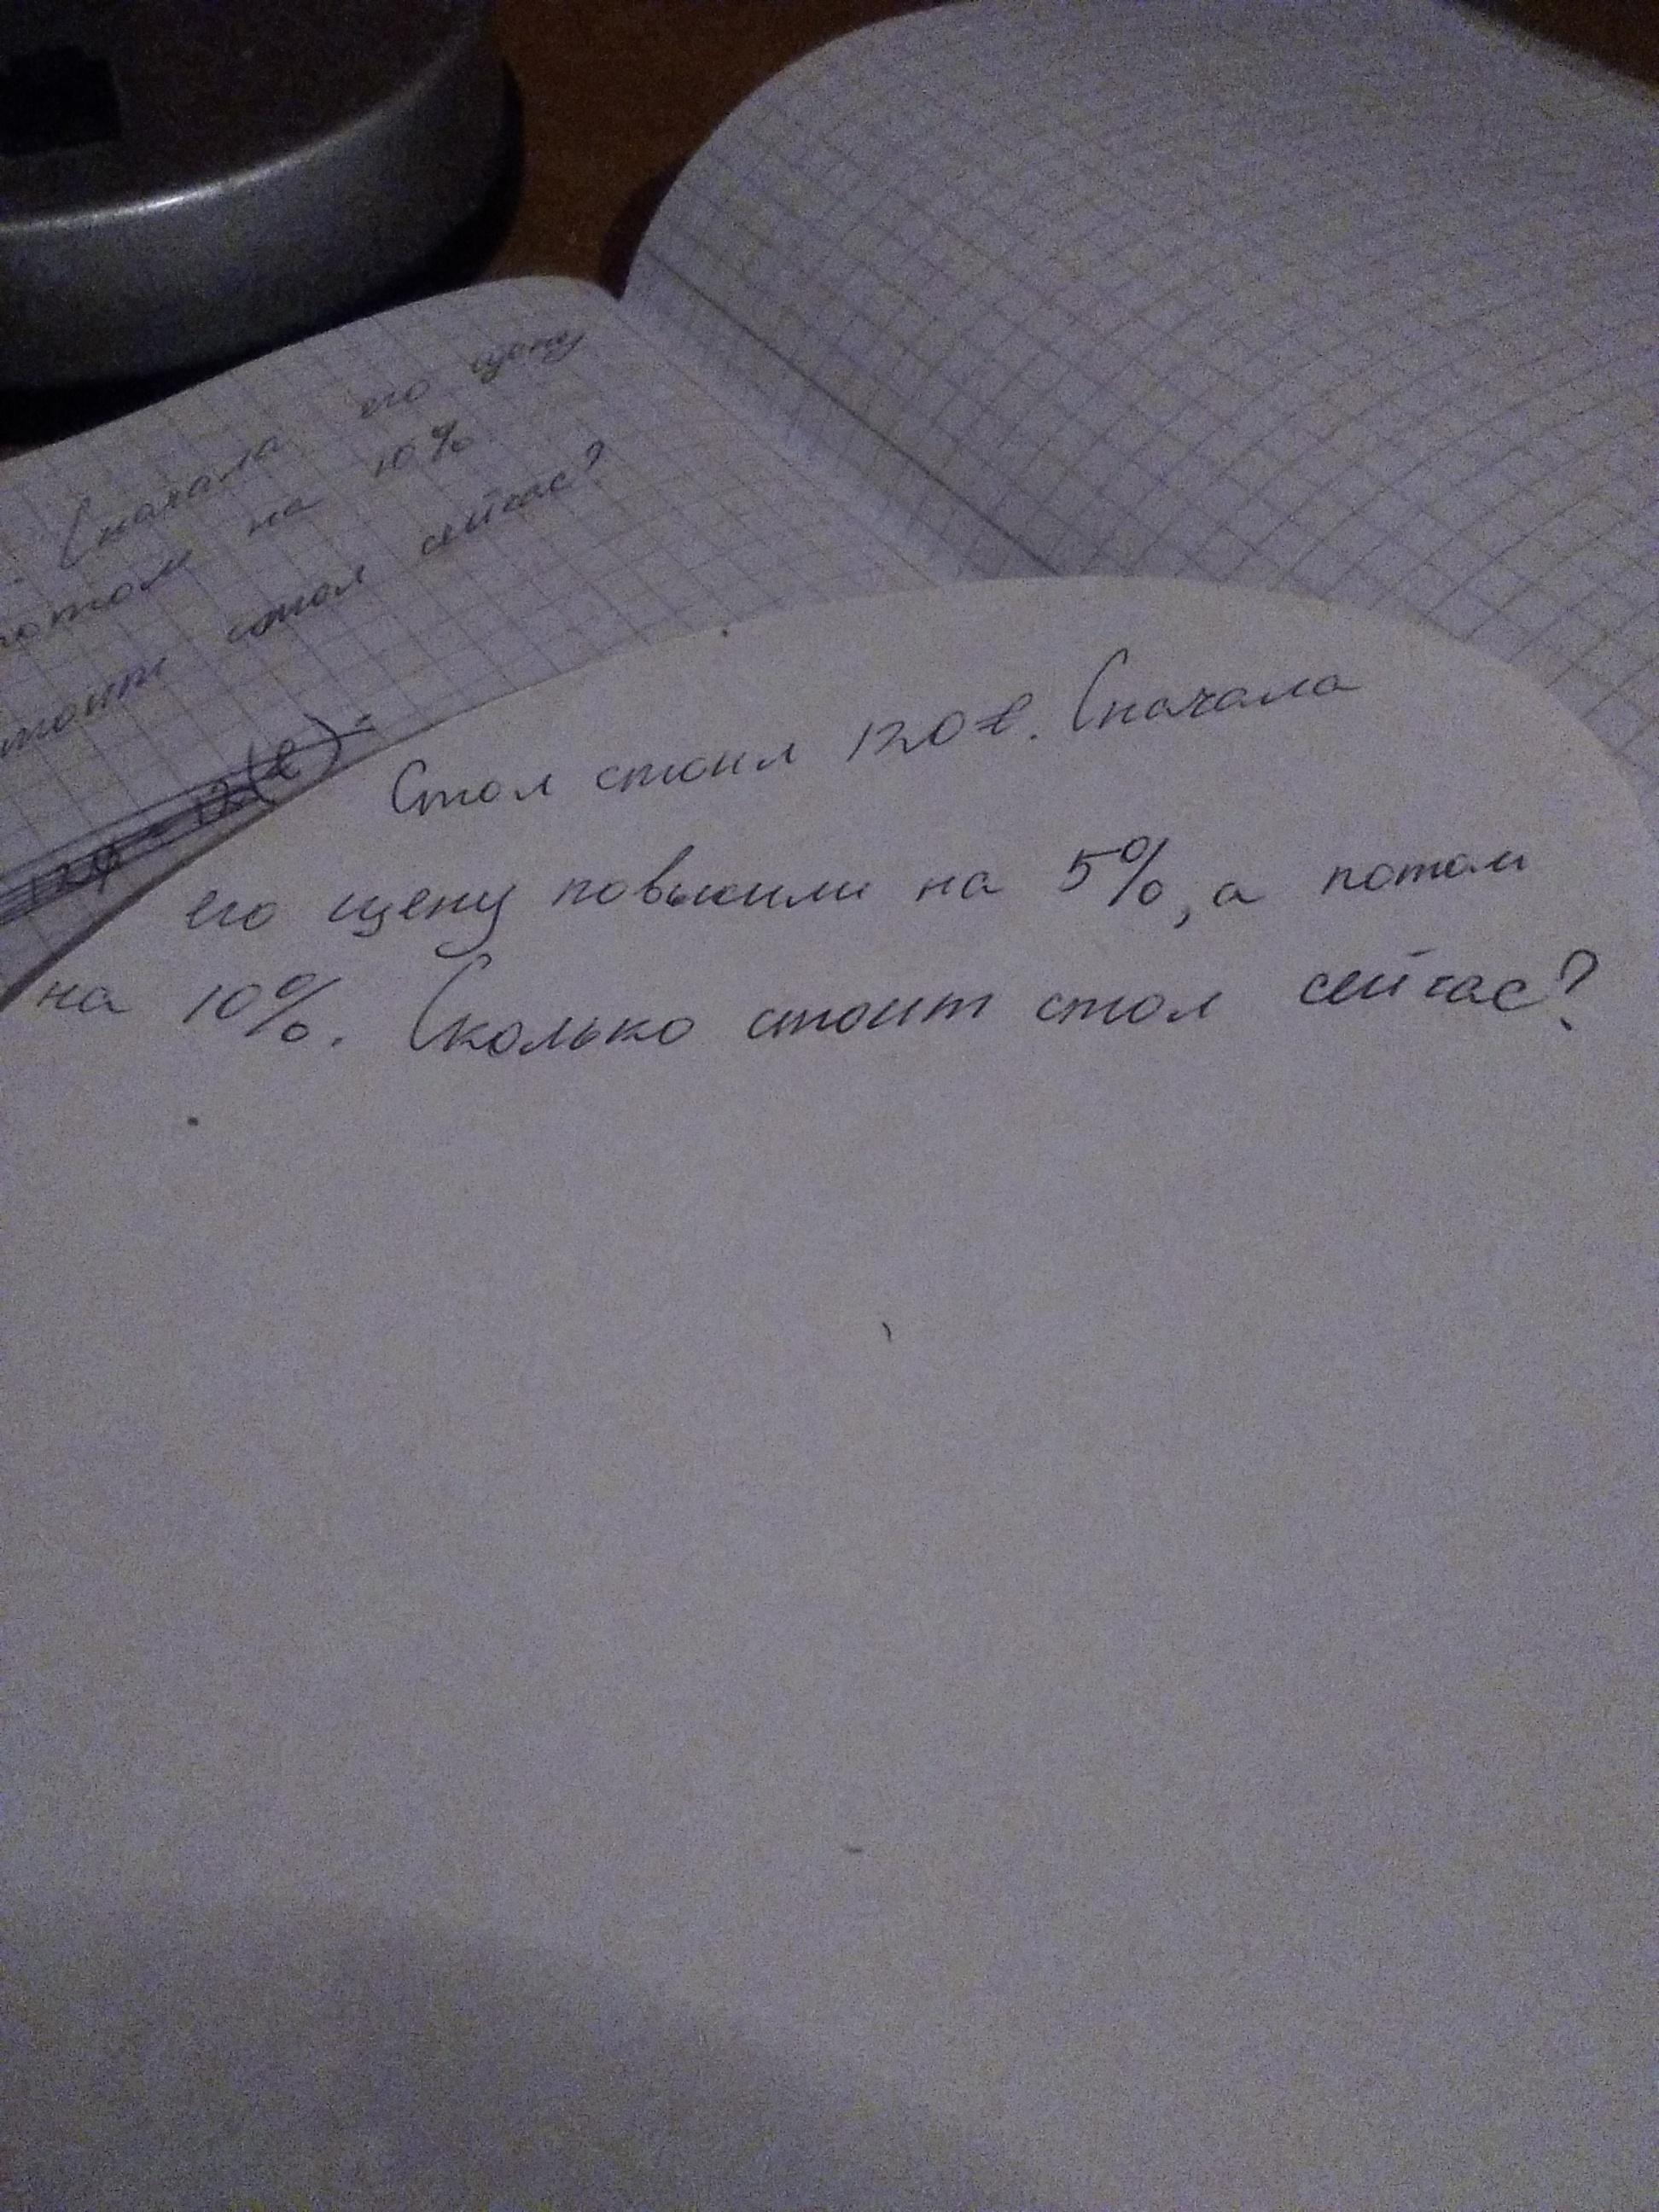 Сначала его цену
потом на 10%
стол сейчас?
Стол стоил 120 £. Сначала
его цену повысили на 5%, а потом
на 10%. Сколько стоит стол сейчас?